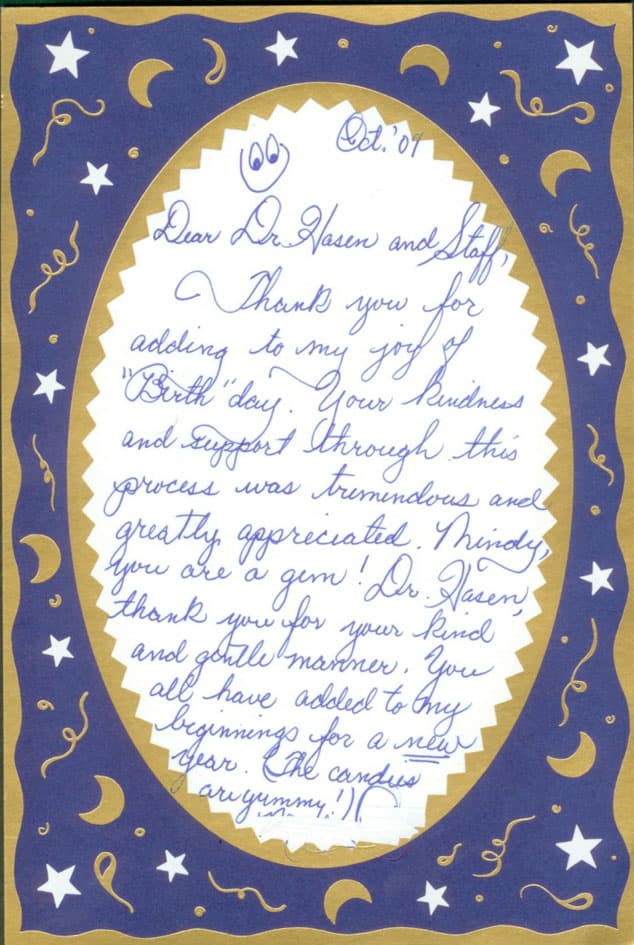 Oct. '07
Dear Dr. Hasen and Staff,
Thank you for
adding to my joy of
"Birth" day. Your kindness
and support through this
process was tremendous and
greatly appreciated. Mindy,
you are a gem! Dr. Hasen,
thank you for your kind
and gentle manner. You
all have added to my
beginnings for a new
year. (The candies
are yummy!)